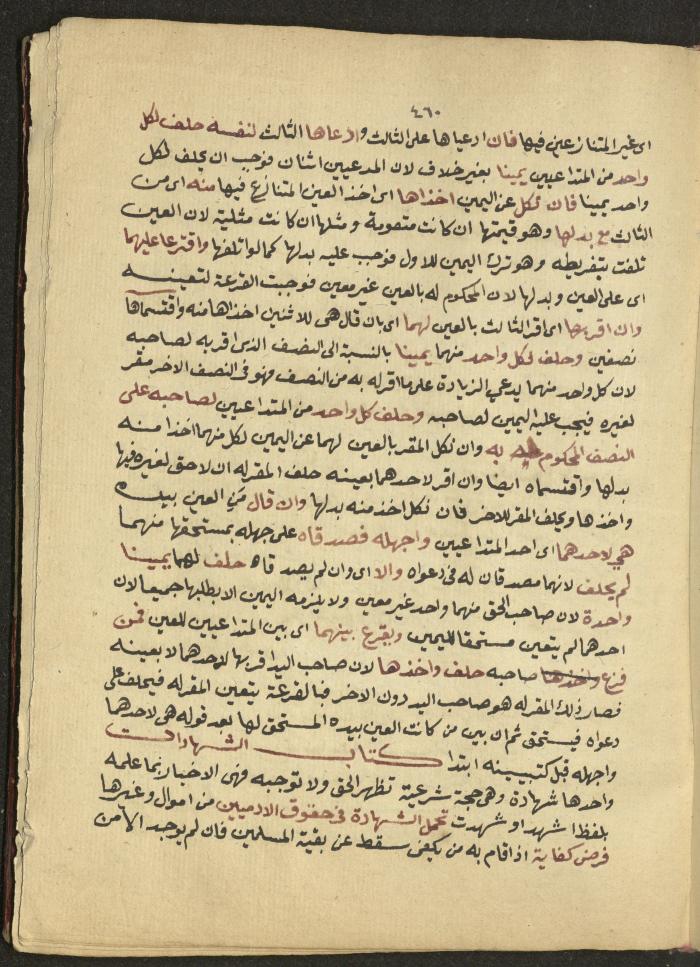 ٤٦٠
اى غير المتنازعين فيها فان ادعياها على الثالث وادعاها الثالث لنفسه حلف لكل
واحد من المتداعيين يمينا بغير خلاف لان المدعيين اثنان فوجب ان يحلف لكل
واحد يمينا فان نكل عن اليمين اخذاها اى اخذ العين المتنازع فيها منه اى من
الثالث مع بدلها وهو قيمتها ان كانت متقومة ومثلها ان كانت مثلية لان العين
تلفت بتفريطه وهو ترك اليمين للاول فوجب عليه بدلها كما لو اتلفها واقترعا عليهما
اى على العين وبدلها لان المحكوم له بالعين غير معين فوجبت القرعة لتعيينه
وان اقر بها اى اقر الثالث بالعين لهما اى بان قال هى للاثنين اخذاها منه واقتسماها
نصفين وحلف لكل واحد منهما يمينا بالنسبة الى النصف الذى اقر به لصاحبه
لان كل واحد منهما يدعي الزيادة على ما اقر له به من النصف فهو فى النصف الاخر مقر
لغيره فيجب عليه اليمين لصاحبه وحلف كل واحد من المتداعيين لصاحبه على
النصف المحكوم به وان نكل المقر بالعين لهما عن اليمين لكل منهما اخذا منه
بدلها واقتسماه ايضا وان اقر لاحدهما بعينه حلف المقر له ان لا حق لغيره فيها
واخذها ويحلف المقر للاخر فان نكل اخذ منه بدلها وان قال من العين بيده
هى لاحدهما اى احد المتداعيين واجهله فصدقاه على جهله بمستحقها منهما
لم يحلف لانهما مصدقان له فى دعواه والا اى وان لم يصدقاه حلف لهما يمينا
واحدة لان صاحب الحق منهما واحد غير معين ولا يلزمه اليمين الا بطلبها جميعا لان
احدهما لم يتعين مستحقا لليمين ويقرع بينهما اى بين المتداعيين للعين فمن
قرع صاحبه حلف واخذها لان صاحب اليد اقر بها لاحدهما لا بعينه
فصار ذلك المقر له هو صاحب اليد دون الاخر فبالقرعة يتعين المقر له فيحلف على
دعواه فيستحق ثم ان بين من كانت العين بيده المستحق لها بعد قوله هى لاحدهما
واجهله قبل كتبيينه ابتدا كتاب الشهادات
واحدها شهادة وهى حجة شرعية تظهر الحق ولا توجبه فهى الاخبار بما علمه
بلفظ اشهد او شهدت تحمل الشهادة فى حقوق الادميين من اموال وغيرها
فرض كفاية اذا قام به من يكفى سقط عن بقية المسلمين فان لم يوجد الا من